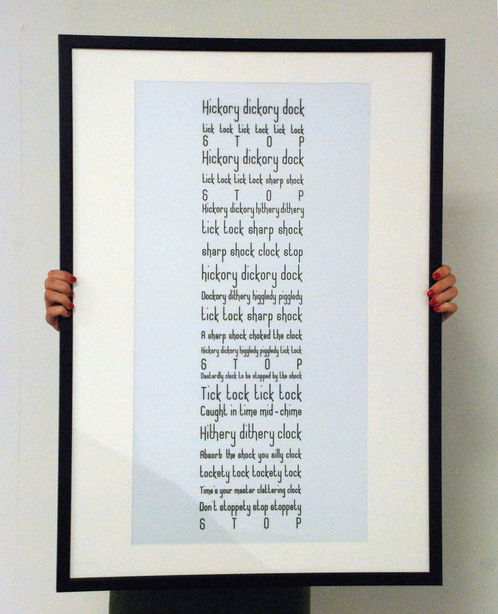 Hickory dickory dock
tick tock tick tock tick tock
S T O P
Hickory dickory dock
tick tock tick tock sharp shock
S T O P
Hickory dickory hithery dithery
tick tock sharp shock
sharp shock clock stop
hickory dickory dock
Dockory dithery higgledy piggledy
tick tock sharp shock
A sharp shock choked the clock
Hickory dickory higgledy piggledy tick tock
S T O P
Dastardly clock to be stopped by the shock
Tick tock tick tock
Caught in time mid-chime
Hithery dithery clock
Absorb the shock you silly clock
tockety tock tockety tock
Time's your master clattering clock
Don't stoppety stop stoppety
S T O P